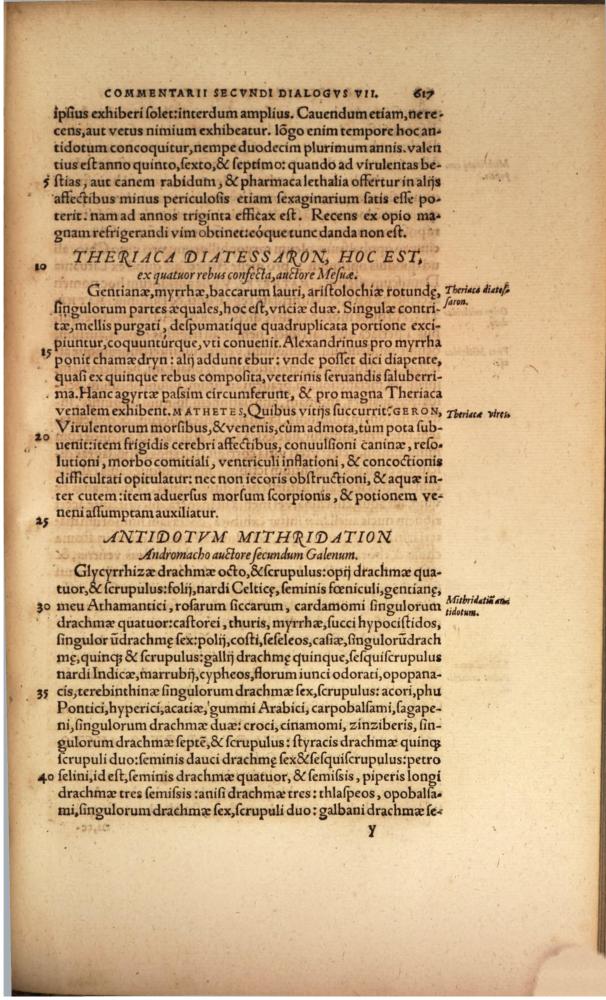 COMMENTARII SECVNDI DIALOGVS VII. 617
ipsius exhiberi solet: interdum amplius. Cauendum etiam, ne re-
cens, aut vetus nimium exhibeatur. lõgo enim tempore hoc an-
tidotum concoquitur, nempe duodecim plurimum annis. valen
tius est anno quinto, sexto, & septimo: quando ad virulentas be-
5 stias, aut canem rabidum, & pharmaca lethalia offertur in alijs
affectibus minus periculosis etiam sexaginarium satis esse po-
terit. nam ad annos triginta efficax est. Recens ex opio ma-
gnam refrigerandi vim obtinet: eóque tunc danda non est.
THERIACA DIATESSARON, HOC EST,
10 ex quatuor rebus confecta, auctore Mesuæ.
Gentianæ, myrrhæ, baccarum lauri, aristolochiæ rotundę, Theriaca diates-
singulorum partes æquales, hoc est, vnciæ duæ. Singulæ contri- saron.
tæ, mellis purgati, despumatique quadruplicata portione exci-
piuntur, coquuntúrque, vti conuenit. Alexandrinus pro myrrha
15 ponit chamædryn: alij addunt ebur: vnde posset dici diapente,
quasi ex quinque rebus composita, veterinis seruandis saluberri-
ma. Hanc agyrtæ passim circumferunt, & pro magna Theriaca
venalem exhibent. MATHETES, Quibus vitijs succurrit? GERON, Theriacæ vires.
Virulentorum morsibus, & venenis, cùm admota, tùm pota sub-
20 uenit: item frigidis cerebri affectibus, conuulsioni caninæ, reso-
lutioni, morbo comitiali, ventriculi inflationi, & concoctionis
difficultati opitulatur: nec non iecoris obstructioni, & aquæ in-
ter cutem: item aduersus morsum scorpionis, & potionem ve-
neni assumptam auxiliatur.
25 ANTIDOTVM MITHRIDATION
Andromacho auctore secundum Galenum.
Glycyrrhizæ drachmæ octo, & scrupulus: opij drachmæ qua-
tuor, & scrupulus: folij, nardi Celticę, seminis fœniculi, gentianę,
30 meu Athamantici, rosarum siccarum, cardamomi singulorum Mithridatiũ an-
drachmæ quatuor: castorei, thuris, myrrhæ, succi hypocistidos, tidotum.
singulorũ drachmę sex: polij, costi, seseleos, casiæ, singulorũ drach
mę, quinq; & scrupulus: gallij drachmę quinque, sesquiscrupulus
nardi Indicæ, marrubij, cypheos, florum iunci odorati, opopana-
35 cis, terebinthinæ singulorum drachmæ sex, scrupulus: acori, phu
Pontici, hyperici, acatiæ, gummi Arabici, carpobalsami, sagape-
ni, singulorum drachmæ duæ: croci, cinamomi, zinziberis, sin-
gulorum drachmæ septẽ, & scrupulus: styracis drachmæ quinq;
scrupuli duo: seminis dauci drachmę sex & sesquiscrupulus: petro
40 selini, id est, seminis drachmæ quatuor, & semissis, piperis longi
drachmæ tres semissis: anisi drachmæ tres: thlaspeos, opobalsa-
mi, singulorum drachmæ sex, scrupuli duo: galbani drachmæ se-
y